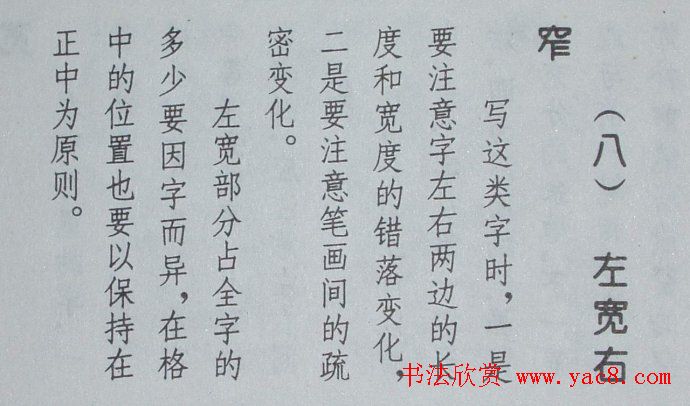 （八） 左宽右
窄
写这类字时，一是
要注意字左右两边的长
度和宽度的错落变化，
二是要注意笔画间的疏
密变化。
左宽部分占全字的
多少要因字而异，在格
中的位置也要以保持在
正中为原则。
书法欣赏 www.yac8.com